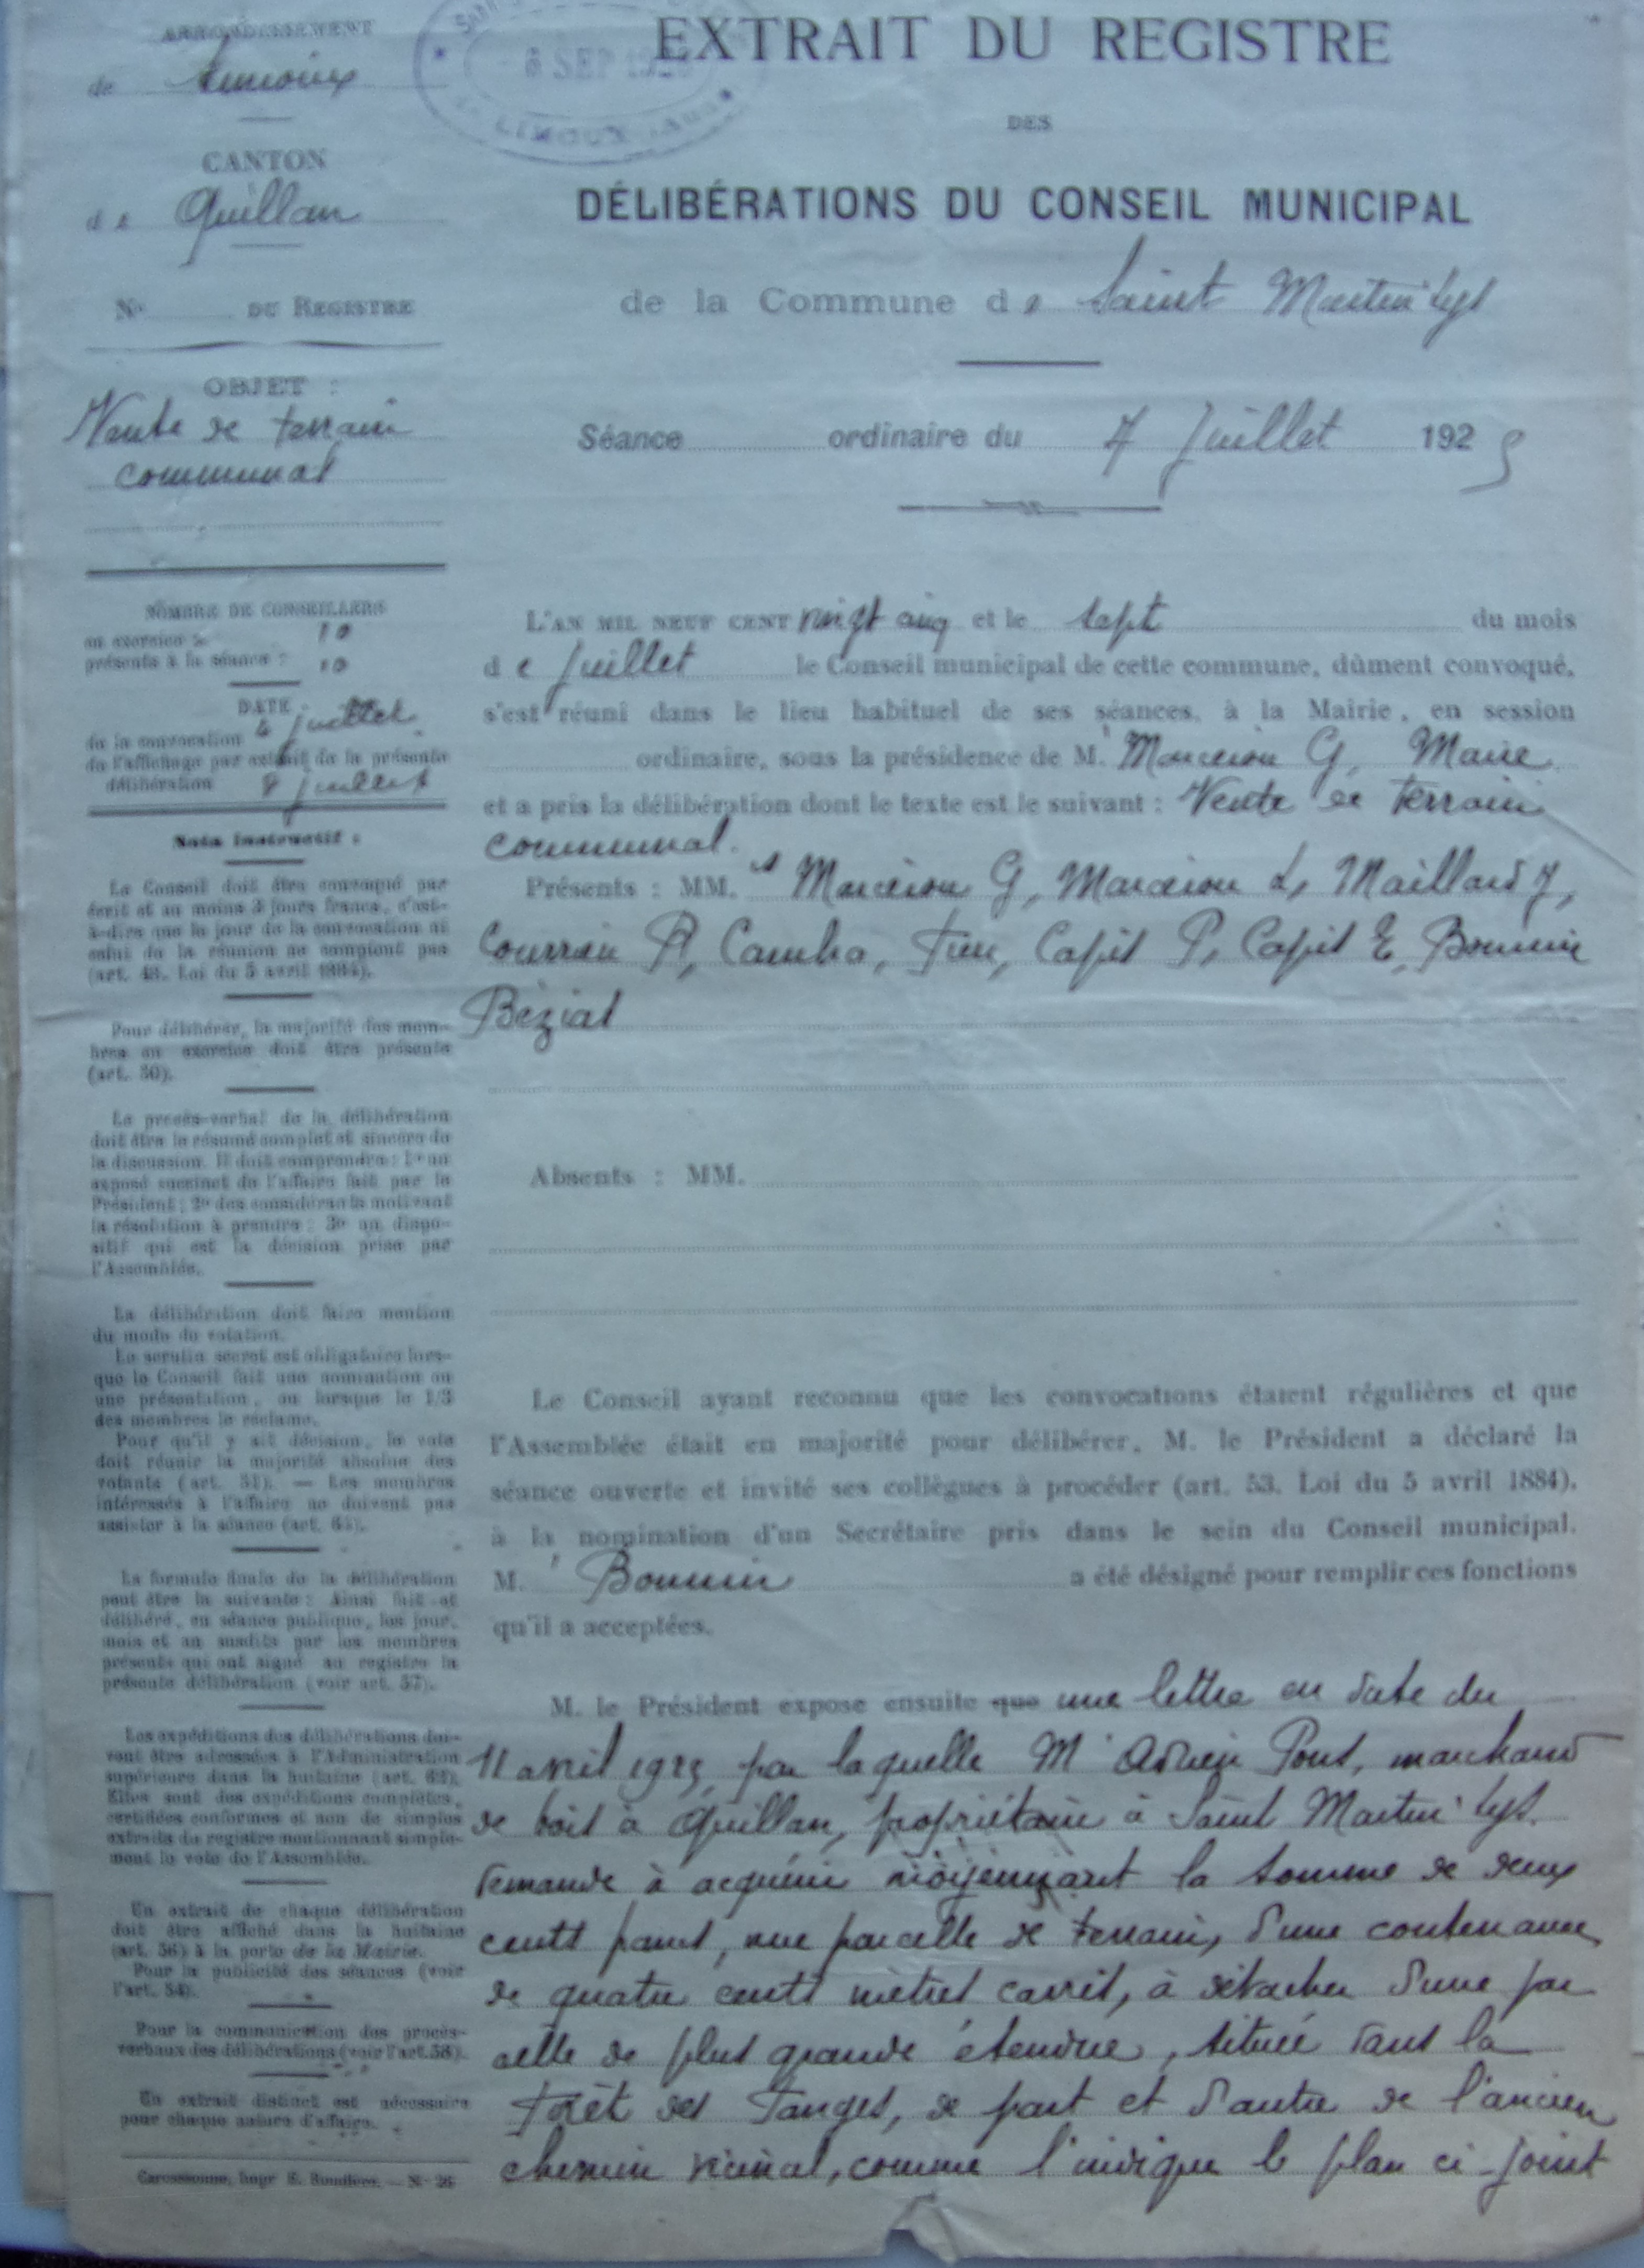 ARRONDISSEMENT
de Limoux
CANTON
de Quillan
No DU REGISTRE
OBJET :
Vente de terrain
communal
NOMBRE DE CONSEILLERS
en exercice : 10
présents à la séance : 10
DATE
de la convocation 4 juillet
de l'affichage par extrait de la présente
délibération 8 juillet
Nota instructif :
Le Conseil doit être convoqué par
écrit et au moins 3 jours francs, c'est-
à-dire que le jour de la convocation ni
celui de la réunion ne comptent pas
(art. 48. Loi du 5 avril 1884).
Pour délibérer, la majorité des mem-
bres en exercice doit être présente
(art. 50).
Le procès-verbal de la délibération
doit être le résumé complet et sincère de
la discussion. Il doit comprendre : 1o un
exposé succinct de l'affaire fait par le
Président ; 2o des considérants motivant
la résolution à prendre ; 3o un dispo-
sitif qui est la décision prise par
l'Assemblée.
La délibération doit faire mention
du mode de votation.
Le scrutin secret est obligatoire lors-
que le Conseil fait une nomination ou
une présentation, ou lorsque le 1/3
des membres le réclame.
Pour qu'il y ait décision, le vote
doit réunir la majorité absolue des
votants (art. 51). — Les membres
intéressés à l'affaire ne doivent pas
assister à la séance (art. 64).
La formule finale de la délibération
peut être la suivante : Ainsi fait et
délibéré, en séance publique, les jour,
mois et an susdits par les membres
présents qui ont signé au registre la
présente délibération (voir art. 57).
Les expéditions des délibérations doi-
vent être adressées à l'Administration
supérieure dans la huitaine (art. 62).
Elles sont des expéditions complètes,
certifiées conformes et non de simples
extraits du registre mentionnant simple-
ment le vote de l'Assemblée.
Un extrait de chaque délibération
doit être affiché dans la huitaine
(art. 56) à la porte de la Mairie.
Pour la publicité des séances (voir
l'art. 54).
Pour la communication des procès-
verbaux des délibérations (voir l'art. 58).
Un extrait distinct est nécessaire
pour chaque nature d'affaire.
Carcassonne, Impr. — N° 26
6 SEP
LIMOUX (AUDE)
EXTRAIT DU REGISTRE
DES
DÉLIBÉRATIONS DU CONSEIL MUNICIPAL
de la Commune de Saint Martin Lys
Séance ordinaire du 7 Juillet 1925
L'AN MIL NEUF CENT vingt cinq et le sept du mois
de Juillet le Conseil municipal de cette commune, dûment convoqué,
s'est réuni dans le lieu habituel de ses séances, à la Mairie, en session
ordinaire, sous la présidence de M. Marcerou G, Maire
et a pris la délibération dont le texte est le suivant : Vente de terrain
communal.
Présents : MM. Marcerou G, Marcerou L, Maillard J,
Courrieu P, Camba, Fieu, Capel P, Capel E, Bonnin
Béziat
Absents : MM.
Le Conseil ayant reconnu que les convocations étaient régulières et que
l'Assemblée était en majorité pour délibérer, M. le Président a déclaré la
séance ouverte et invité ses collègues à procéder (art. 53. Loi du 5 avril 1884),
à la nomination d'un Secrétaire pris dans le sein du Conseil municipal.
M. Bonnin a été désigné pour remplir ces fonctions
qu'il a acceptées.
M. le Président expose ensuite que une lettre en date du
11 avril 1925, par laquelle M Adrien Pont, marchand
de bois à Quillan, propriétaire à Saint Martin Lys.
demande à acquérir moyennant la somme de deux
cents francs, une parcelle de terrain, d'une contenance
de quatre cents mètres carrés, à détacher d'une par
celle de plus grande étendue, située dans la
Forêt des Fanges, de part et d'autre de l'ancien
chemin vicinal, comme l'indique le plan ci-joint